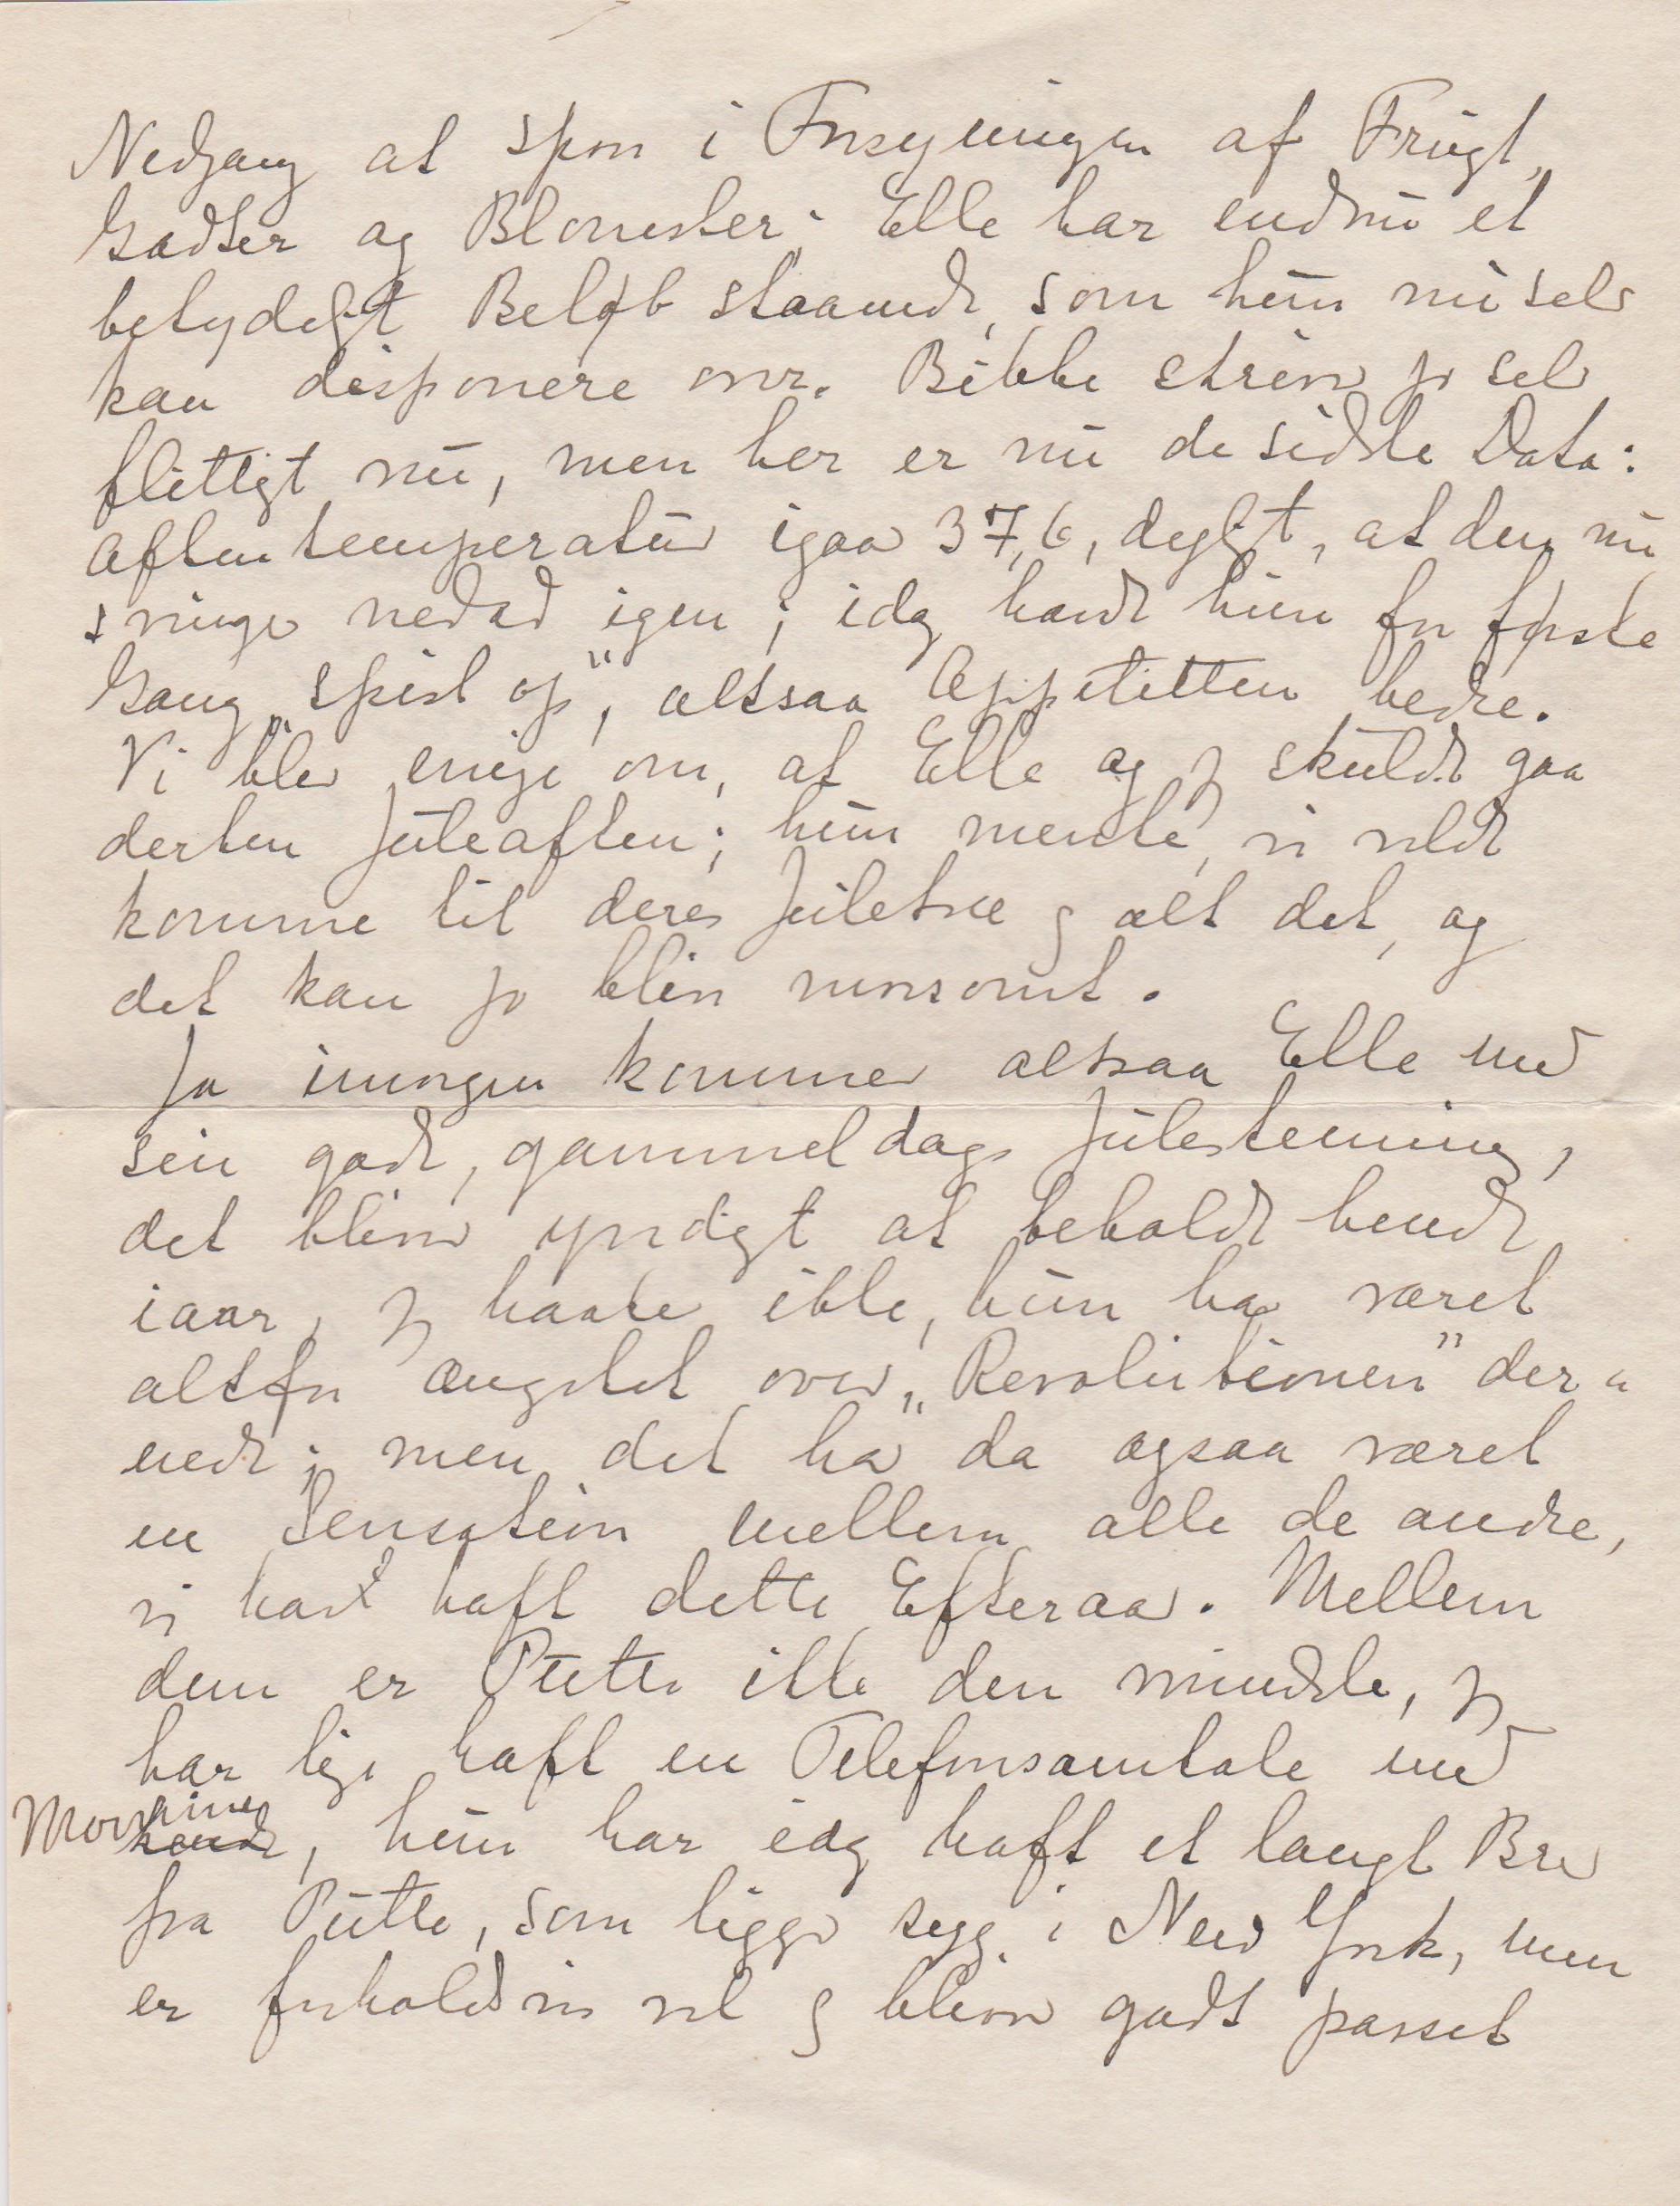 Nedgang at spore i Forsyningen af Frugt,
Godter og Blomster; Elle har endnu et
betydeligt Beløb staaende, som hun nu selv
kan disponere over. Bibbe skriver jo selv
flittigt nu, men her er nu de sidste Data:
Aftentemperatur igaar 37,6, dejligt, at den nu
svinger nedad igen; idag havde hun for første
Gang „spist op", altsaa Appetitten bedre.
Vi blev enige om, at Elle og jeg skulde gaa
derhen Juleaften; hun mente, vi vilde
komme til deres Juletræ og alt det, og
det kan jo blive morsomt.
Ja imorgen kommer altsaa Elle med
sin gode, gammeldags Julestemning,
det bliver yndigt at beholde hende
iaar, jeg haaber ikke, hun har været
altfor ængstet over „Revolutionen" der-
nede; men det har da ogsaa været
en Sensation mellem alle de andre,
vi har haft dette Efteraar. Mellem
dem er Putte ikke den mindste, jeg
har lige haft en Telefonsamtale med
Mornine
hende, hun har idag haft et langt Brev
fra Putte, som ligger syg i New York, men
er forholdsvis vel og bliver godt passet